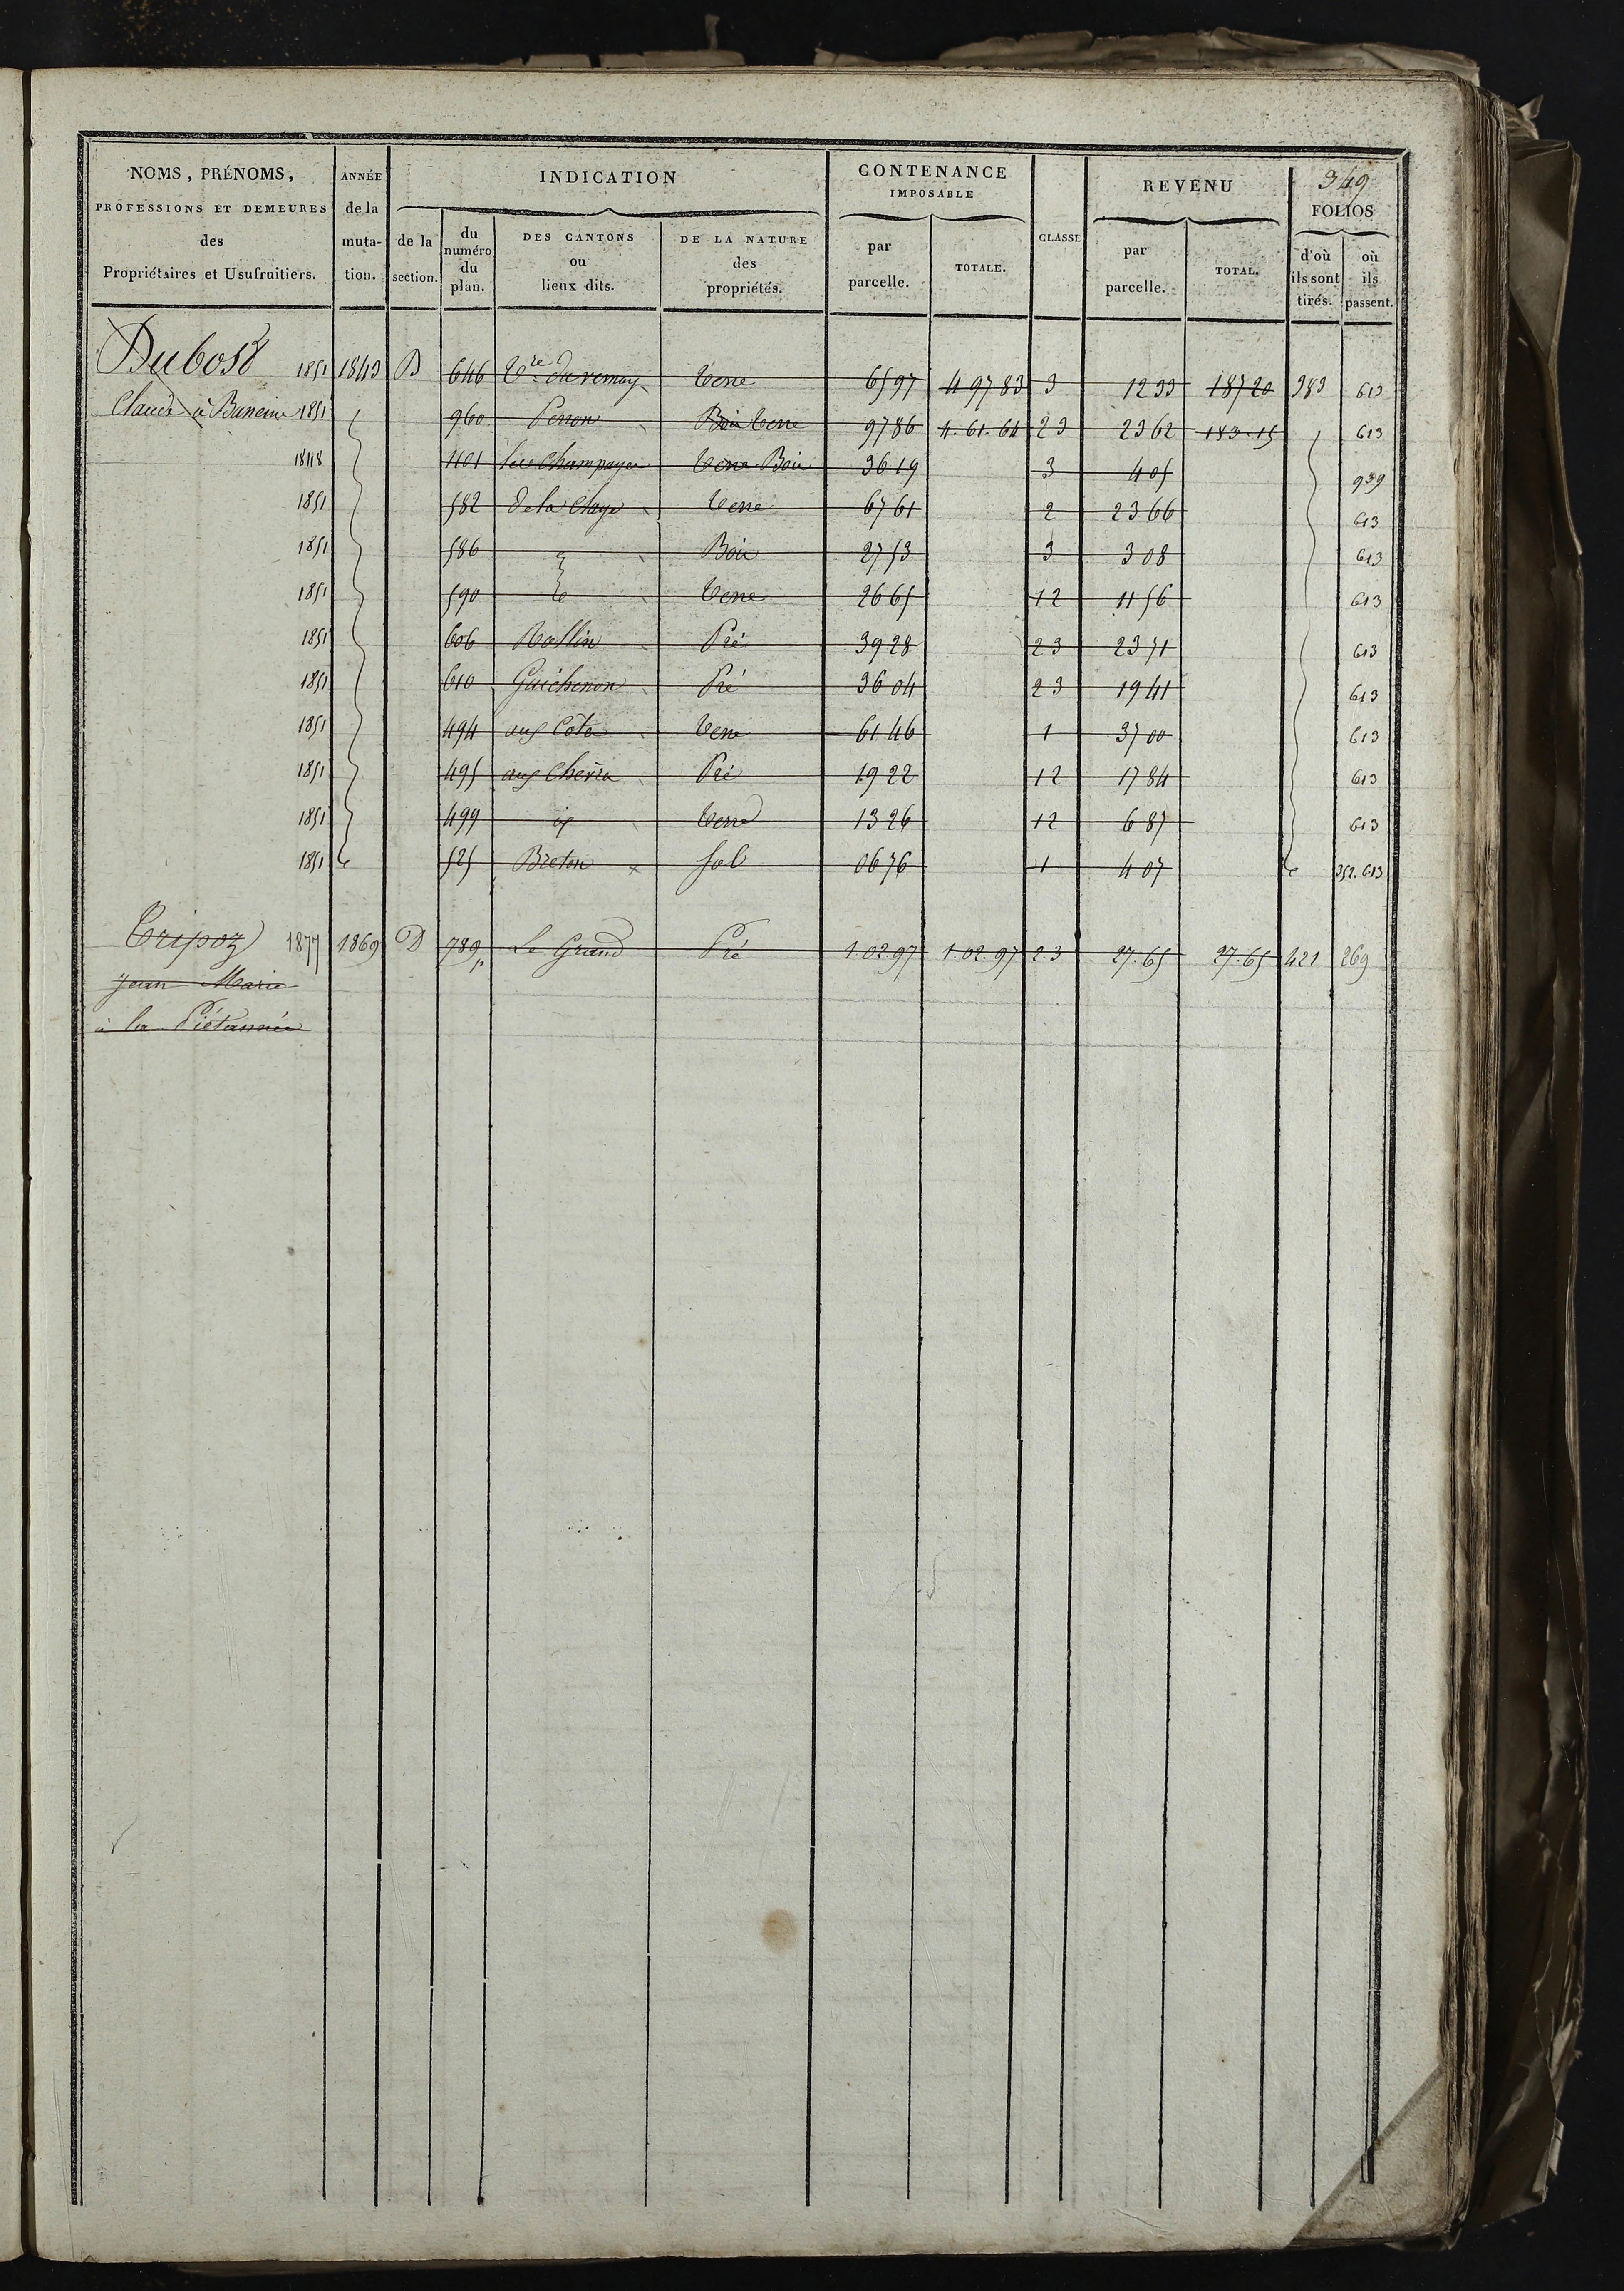 349
NOMS, PRÉNOMS, PROFESSIONS ET DEMEURES des Propriétaires et Usufruitiers.
ANNÉE de la muta-tion.
INDICATION
de la section.
du numéro du plan.
DES CANTONS ou lieux dits.
DE LA NATURE des propriétés.
CONTENANCE IMPOSABLE
par parcelle.
TOTALE.
CLASSE
REVENU
par parcelle.
TOTAL.
FOLIOS
d'où ils sont tirés.
où ils passent.
Dubost 1851 1843 B 646 Vre du vernay Terre 65 97 4 97 83 3 12 33 187 20 383 613
Claude à 1851 960 Perron Bois Terre 97 86 4. 61. 64 2 3 23 62 183. 15 613
1848 1101 Champagne Terre Bois 36 19 3 4 05 939
1851 582 De la Claye Terre 67 61 2 23 66 613
1851 586 Bois 27 53 3 3 08 613
1851 590 Terre 26 65 1 2 11 56 613
1851 606 Rollin Pré 39 28 2 3 23 71 613
1851 610 Guichenon Pré 36 04 2 3 19 41 613
1851 494 aux Côtes Terre 61 46 1 37 00 613
1851 495 aux Pré 19 22 1 2 17 84 613
1851 499 Terre 13 26 1 2 6 87 613
1851 525 Breton Sol 06 76 1 4 07 352. 613
Tripoz 1877 1869 D 789p Le Grand Pré 1. 02. 97 1. 02. 97 2.3 27. 65 27. 65 421 269
Jean Marie
à la